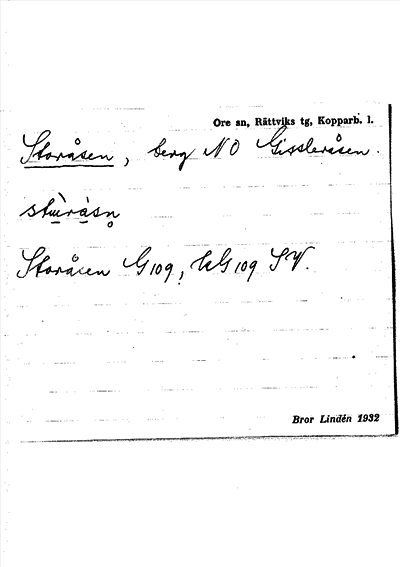 Ore sn, Rättviks tg, Kopparb. l.
Storåsen, berg NO Gissleråsen.
Storåsen G109, G109 SV.
Bror Lindén 1932